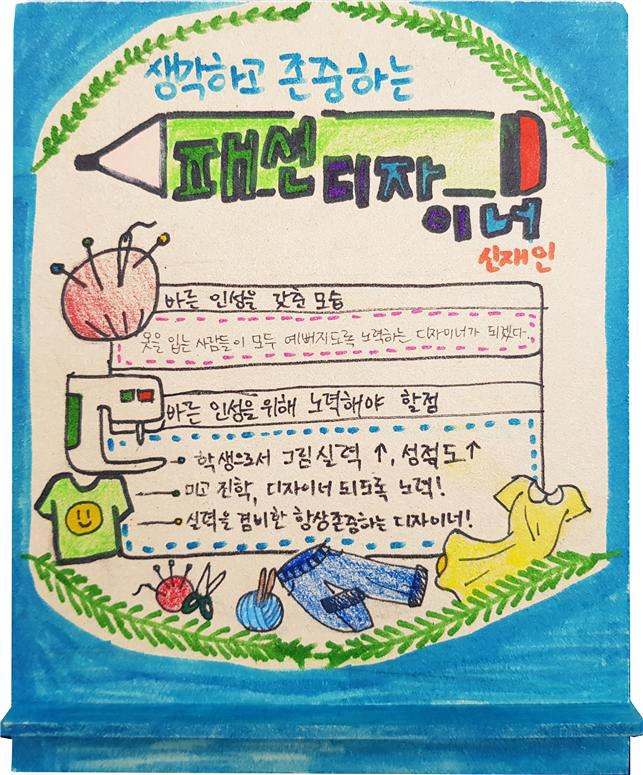 생각하고 존중하는
패션디자
이너
신재인
바른 인성을 갖춘 모습
옷을 입는 사람들이 모두 예뻐지도록 노력하는 디자이너가 되겠다.
바른 인성을 위해 노력해야 할점
학생으로서 그림실력 ↑, 성적도↑
미고 진학, 디자이너 되도록 노력!
실력을 겸비한 항상존중하는 디자이너!